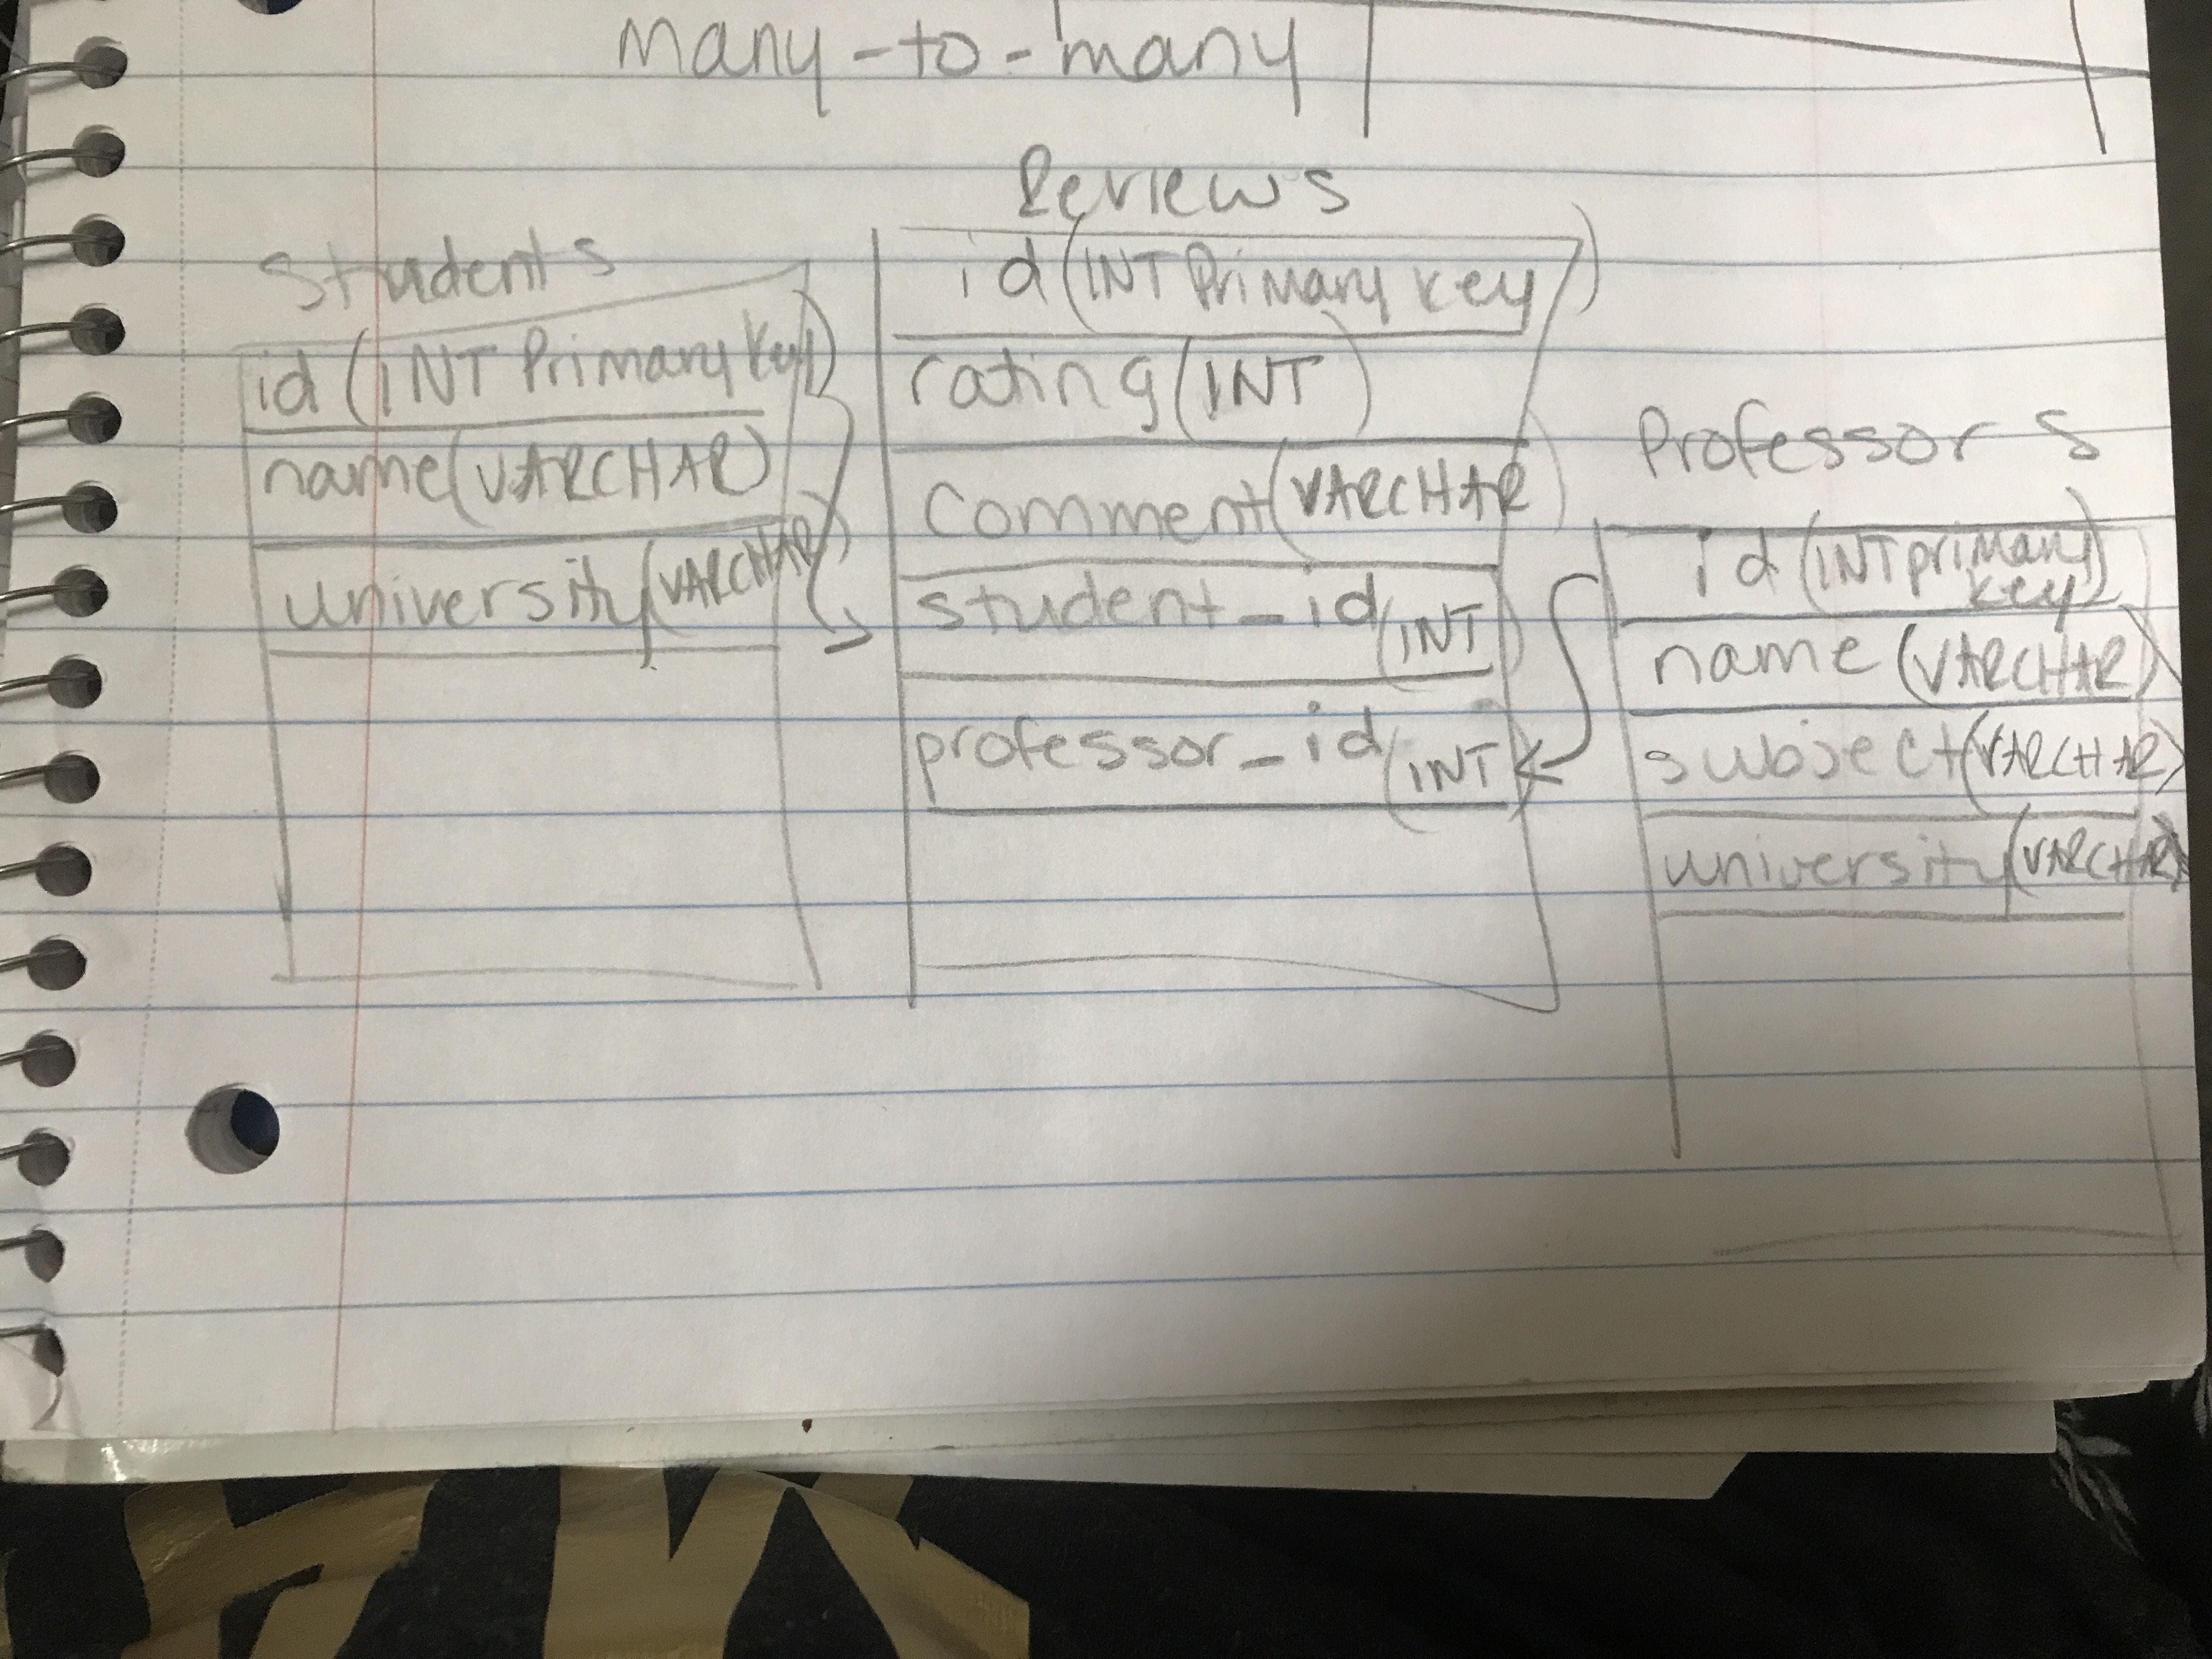 many-to-many
Students
id (INT Primary Key)
name(VARCHAR)
university(VARCHAR)
Reviews
id(INT Primary key)
rating(INT)
Comment(VARCHAR)
student_id(INT)
professor_id(INT)
Professors
id(INT primary key)
name(VARCHAR)
subject(VARCHAR)
university(VARCHAR)